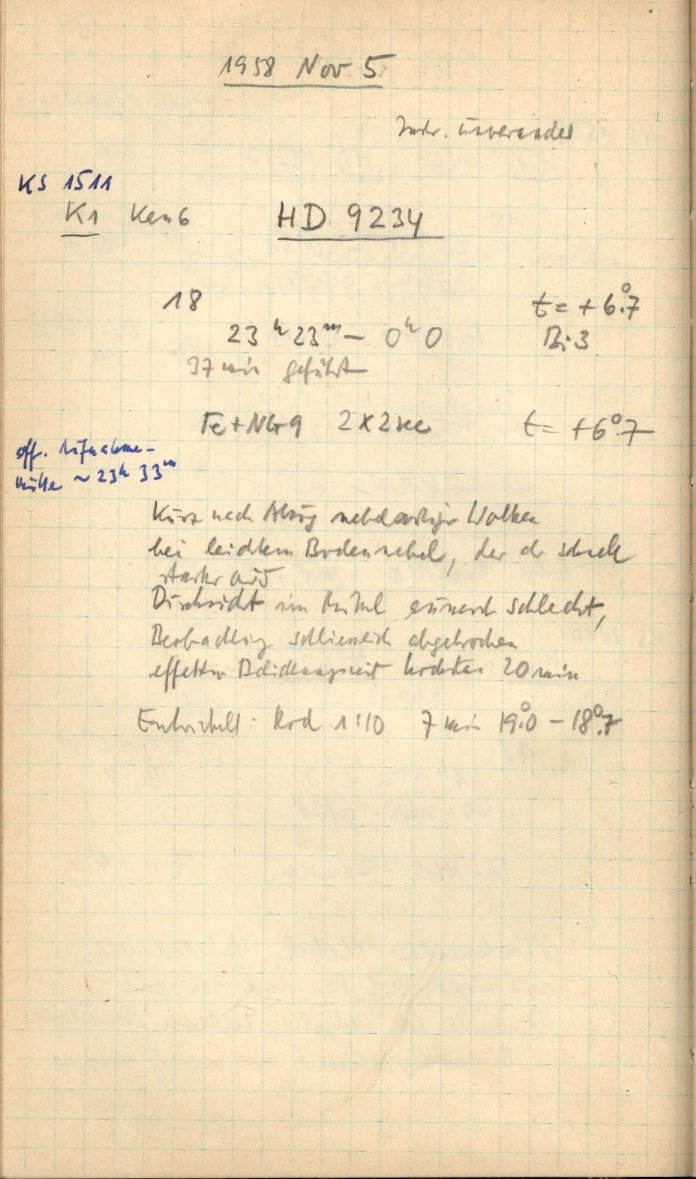 1958 Nov 5
Instr. unverändert
KS 1511
K1 Ken 6 HD 9234
18 t = +6°.7
23ʰ23ᵐ – 0ʰ0 Bi 3
37 min geführt
Fe+Ng 2x2sec t = +6°.7
eff. Aufnahme-
mitte ~ 23ʰ 33ᵐ
Kurz nach Abzug nebelartiger Wolken
bei leichtem Bodennebel, der
Durchsicht im Mittel schlecht,
Beobachtung schliesslich abgebrochen
effektive Belichtungszeit höchstens 20 min
Entwickelt: Rod 1:10 7 min 19°.0 – 18°.7